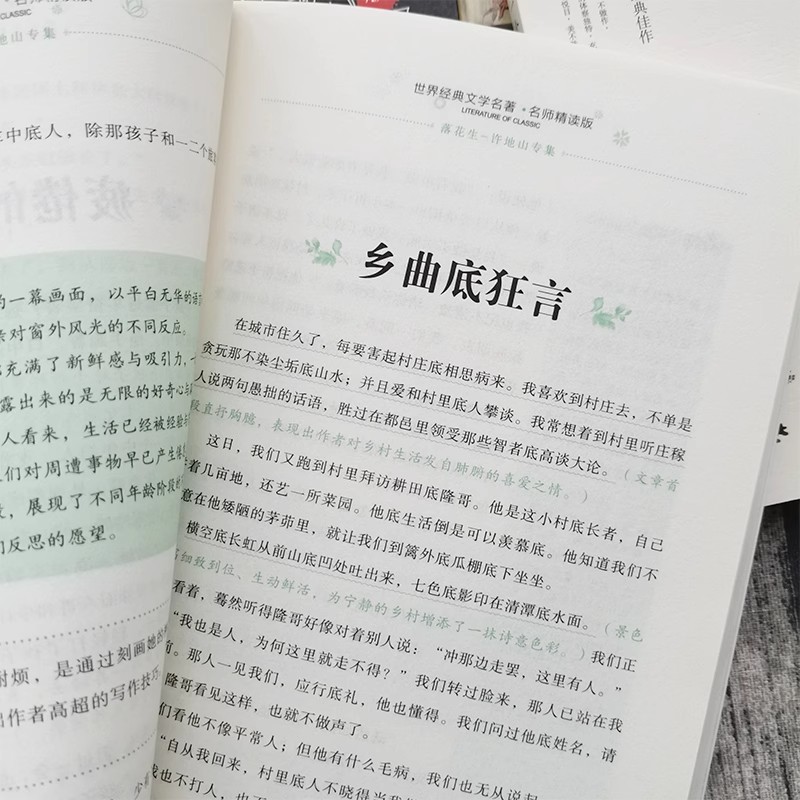 名师精读版
CLASSIC
中底人，除那孩子和一二个
疲倦
一幕画面，以平白无华的语
对窗外风光的不同反应。
充满了新鲜感与吸引力，一
露出来的是无限的好奇心与
人看来，生活已经被经验与
们对周遭事物早已产生
，展现了不同年龄阶段的
们反思的愿望。
烦，是通过刻画她的
出作者高超的写作技巧
典佳作
世界经典文学名著·名师精读版
LITERATURE OF CLASSIC
落花生—许地山专集
乡曲底狂言
在城市住久了，每要害起村庄底相思病来。我喜欢到村庄去，不单是
贪玩那不染尘垢底山水；并且爱和村里底人攀谈。我常想着到村里听庄稼
人说两句愚拙的话语，胜过在都邑里领受那些智者底高谈大论。（文章首
段直抒胸臆，表现出作者对乡村生活发自肺腑的喜爱之情。）
这日，我们又跑到村里拜访耕田底隆哥。他是这小村底长者，自己
着几亩地，还艺一所菜园。他底生活倒是可以羡慕底。他知道我们不
意在他矮陋的茅茆里，就让我们到篱外底瓜棚底下坐坐。
横空底长虹从前山底凹处吐出来，七色底影印在清潭底水面。（景色
细致到位、生动鲜活，为宁静的乡村增添了一抹诗意色彩。）我们正
看着，蓦然听得隆哥好像对着别人说：“冲那边走罢，这里有人。”
“我也是人，为何这里就走不得？”我们转过脸来，那人已站在我
前。那人一见我们，应行底礼，他也懂得。我们问过他底姓名，请
隆哥看见这样，也就不做声了。
们看他不像平常人；但他有什么毛病，我们也无从说起
“自从我回来，村里底人不晓得当我
也不打人，也